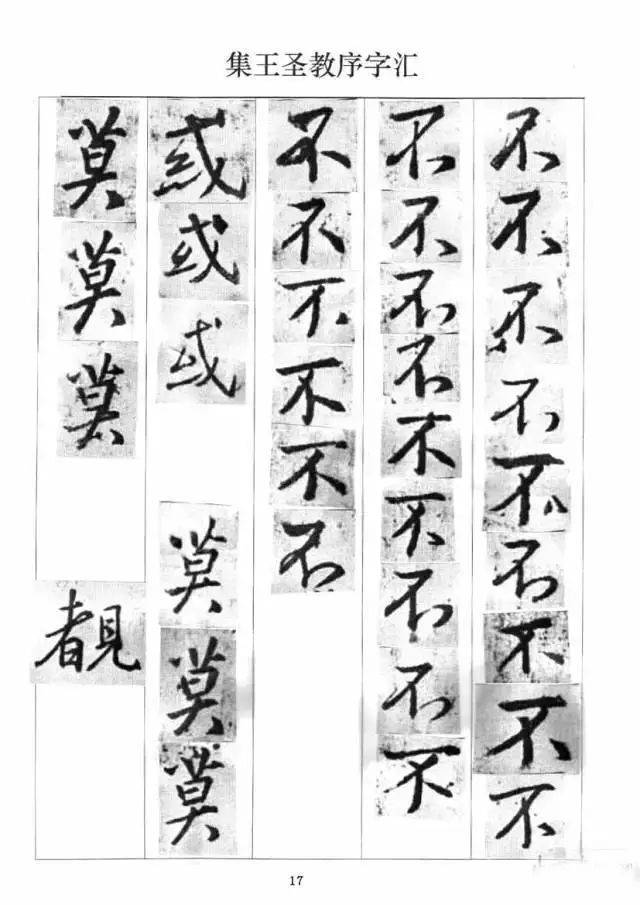 集王圣教序字汇
不不不不不不不不不
不不不不不不不不不
不不不不不不
或或或莫莫莫
莫莫莫覩
17